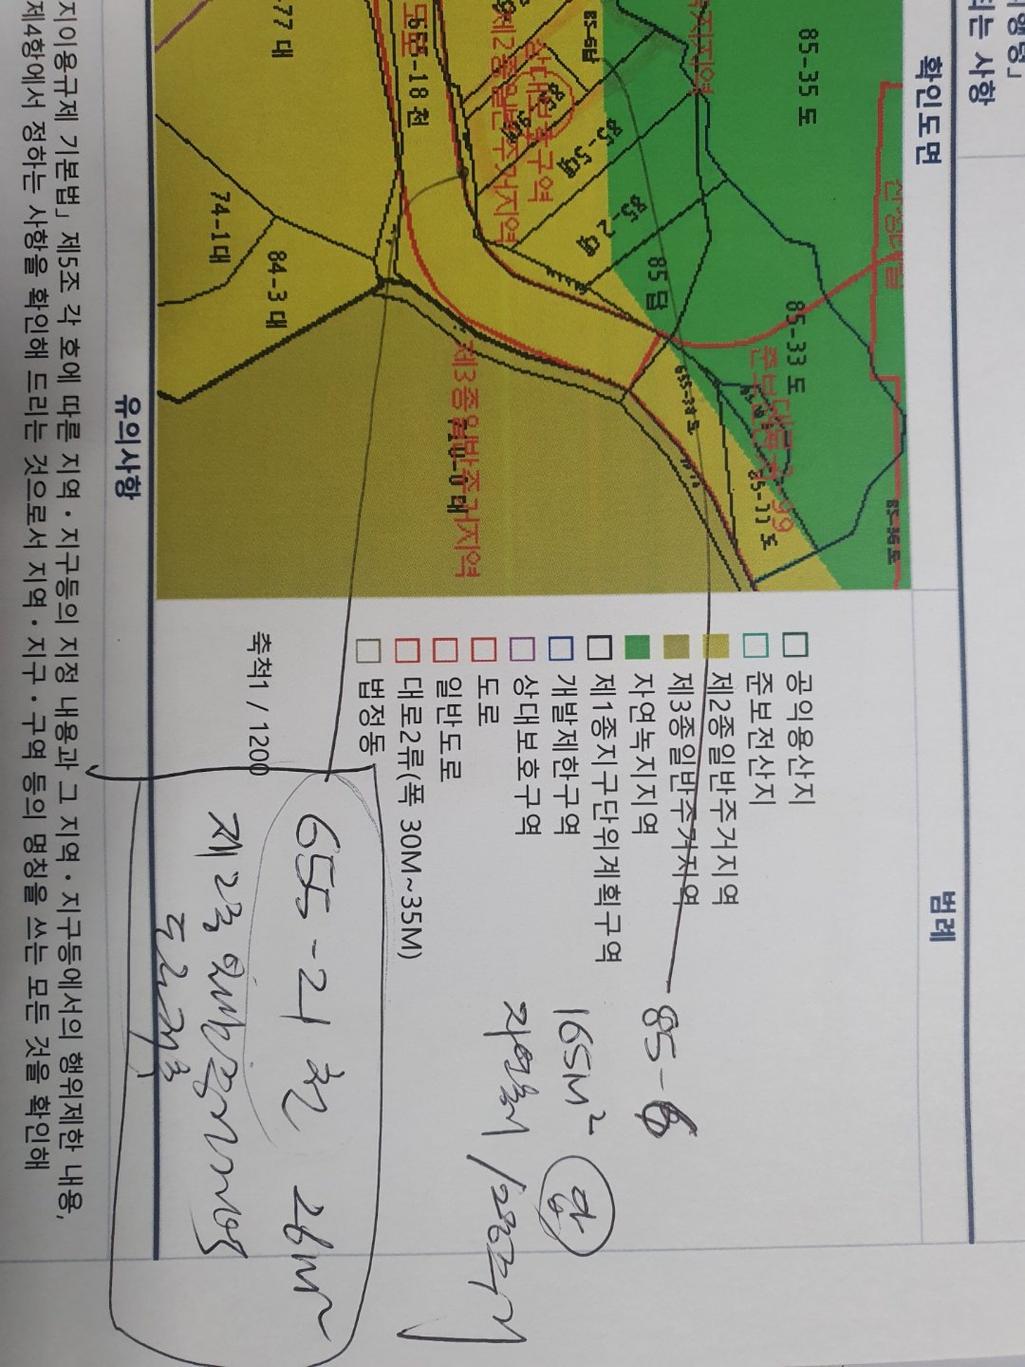 확인도면
범례
85-35 도
85-33 도
85-11 도
85-2 대
85-5대
85 답
655-18 천
77 대
74-1대
84-3 대
상대보호구역
제2종일반주거지역
제3종일반주거지역
공익용산지
준보전산지
제2종일반주거지역
제3종일반주거지역
자연녹지지역
제1종지구단위계획구역
개발제한구역
상대보호구역
도로
일반도로
대로2류(폭 30M~35M)
법정동
축척1 / 1200
85-6
165M² 답
자연녹지 / 2종주거
655-21 천 26M²
제2종 일반주거지역
유의사항
지이용규제 기본법」 제5조 각 호에 따른 지역・지구등의 지정 내용과 그 지역・지구등에서의 행위제한 내용,
제4항에서 정하는 사항을 확인해 드리는 것으로서 지역・지구・구역 등의 명칭을 쓰는 모든 것을 확인해